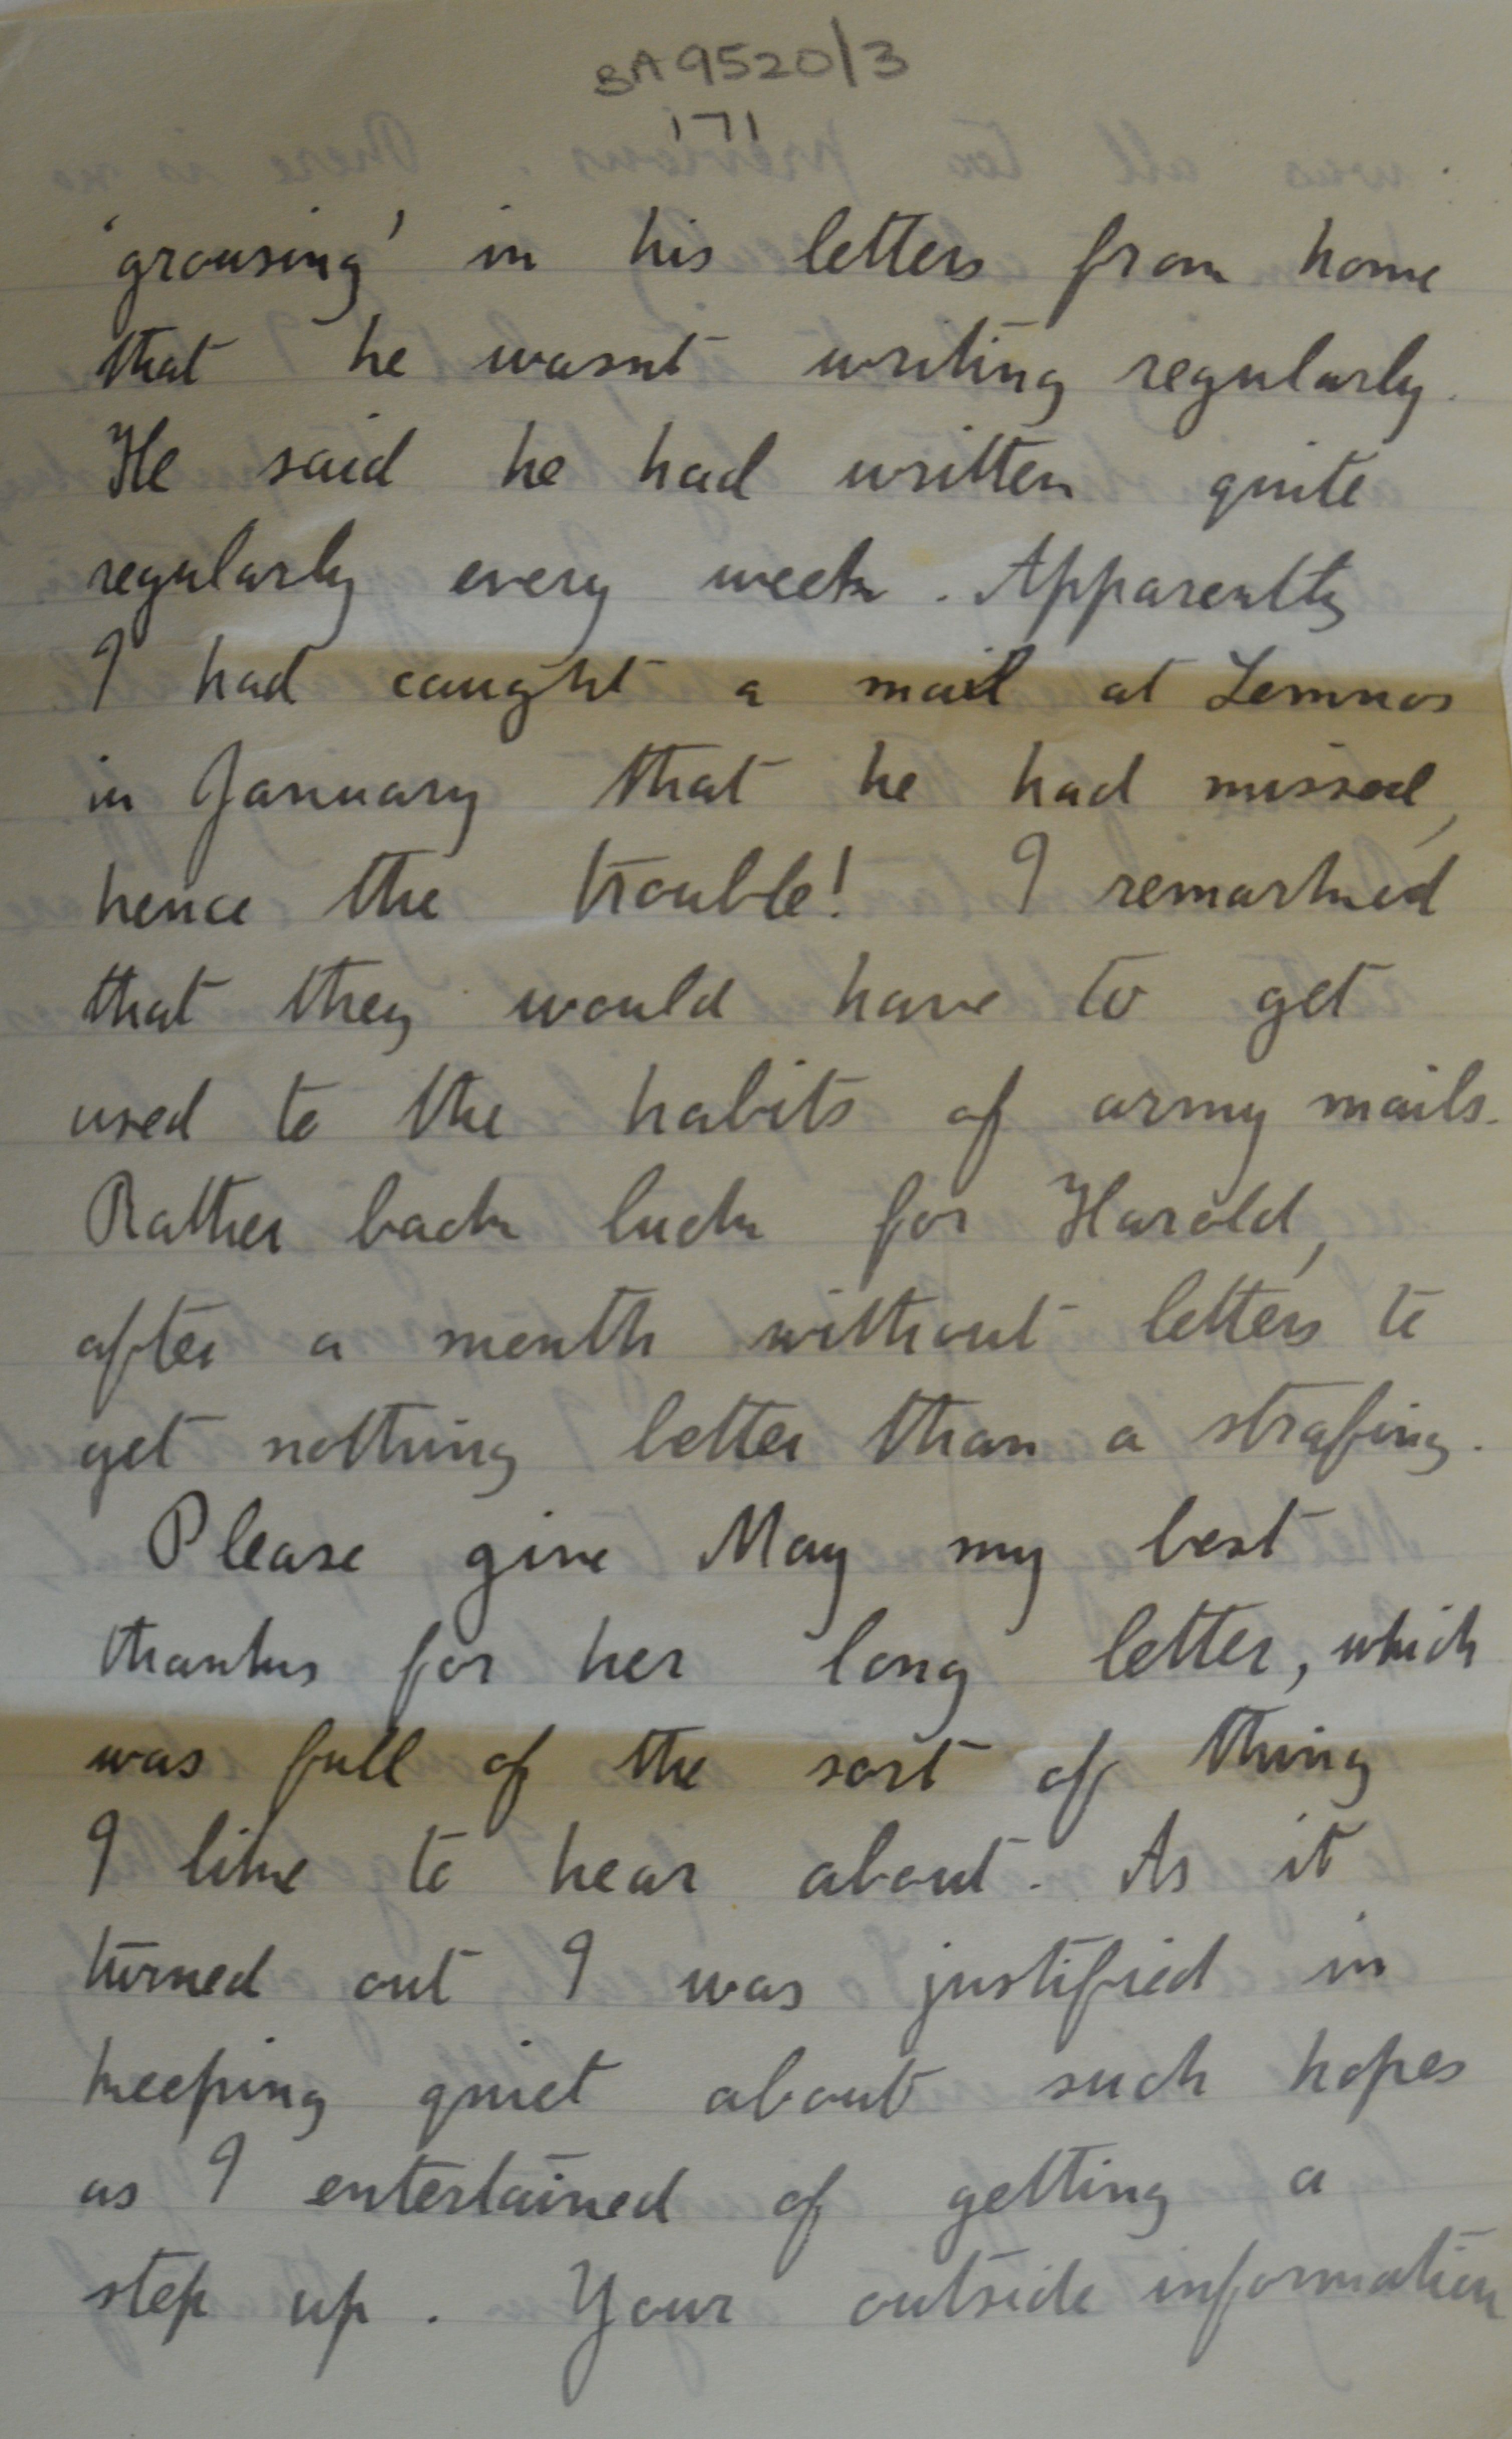 BA 9520/3
171
'grousing' in his letters from home
that he wasnt writing regularly.
He said he had written quite
regularly every week. Apparently
I had caught a mail at Lemnos
in January that he had missed,
hence the trouble! I remarked
that they would have to get
used to the habits of army mails.
Rather back luck for Harold,
after a month without letters to
get nothing better than a strafing.
Please give May my best
thanks for her long letter, which
was full of the sort of thing
I like to hear about. As it
turned out I was justified in
keeping quiet about such hopes
as I entertained of getting a
step up. Your outside information